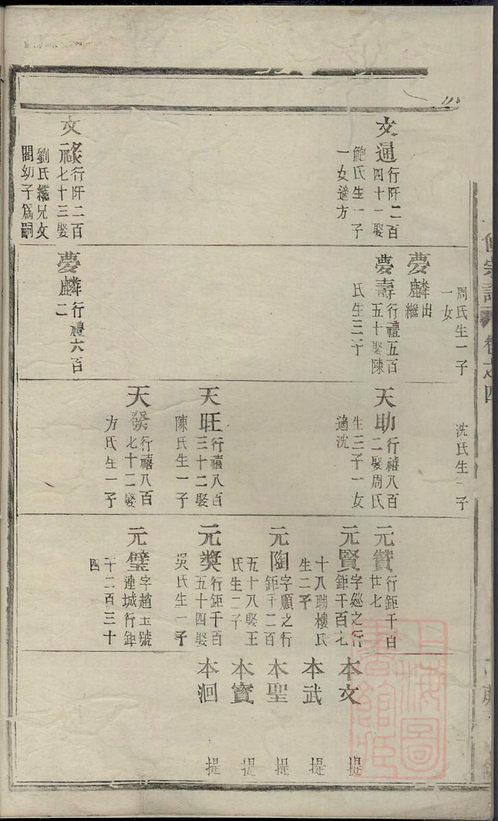 周氏生一子
一女
沈氏生一子
文通行阡二百
四十一娶
鮑氏生一子
一女適方
文祿行阡二百
七十三娶
劉氏繼兄文
閣幼子為嗣
夢麟出
繼
夢壽行禮五百
五十娶陳
氏生三子
夢麟行禮六百
二
天助行禧八百
二娶周氏
生三子一女
適沈
天旺行禧八百
三十二娶
陳氏生一子
天發行禧八百
七十二娶
方氏生一子
元贊行鉅千百
廿七
元賢字巡之行
鉅千百七
十八娶樓氏
生二子
元陶字順之行
鉅千二百
五十八娶王
氏生二子
元獎行鉅千百
五十四娶
吳氏生一子
元璧字趙玉號
連城行鉅
千二百三十
四
本文 提
本武 提
本聖 提
本寶 提
本洄 提